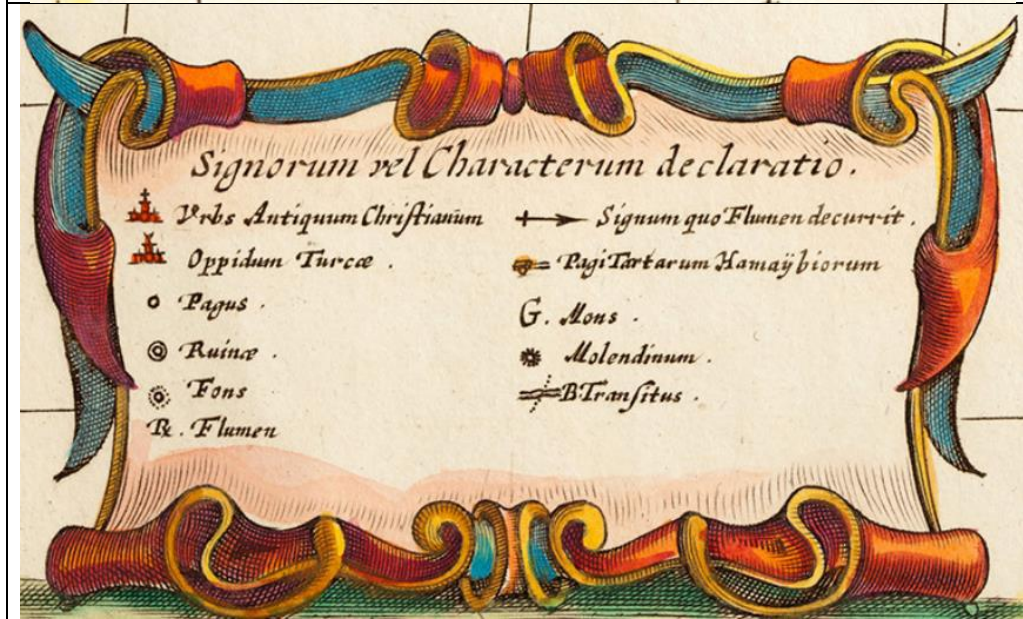 Signorum vel Characterum declaratio.
Vrbs Antiquum Christianum
Oppidum Turcæ.
Pagus.
Ruinæ.
Fons
R. Flumen
Signum quo Flumen decurrit.
Pagi Tartarum Hamaÿbiorum
G. Mons.
Molendinum.
B Transitus.